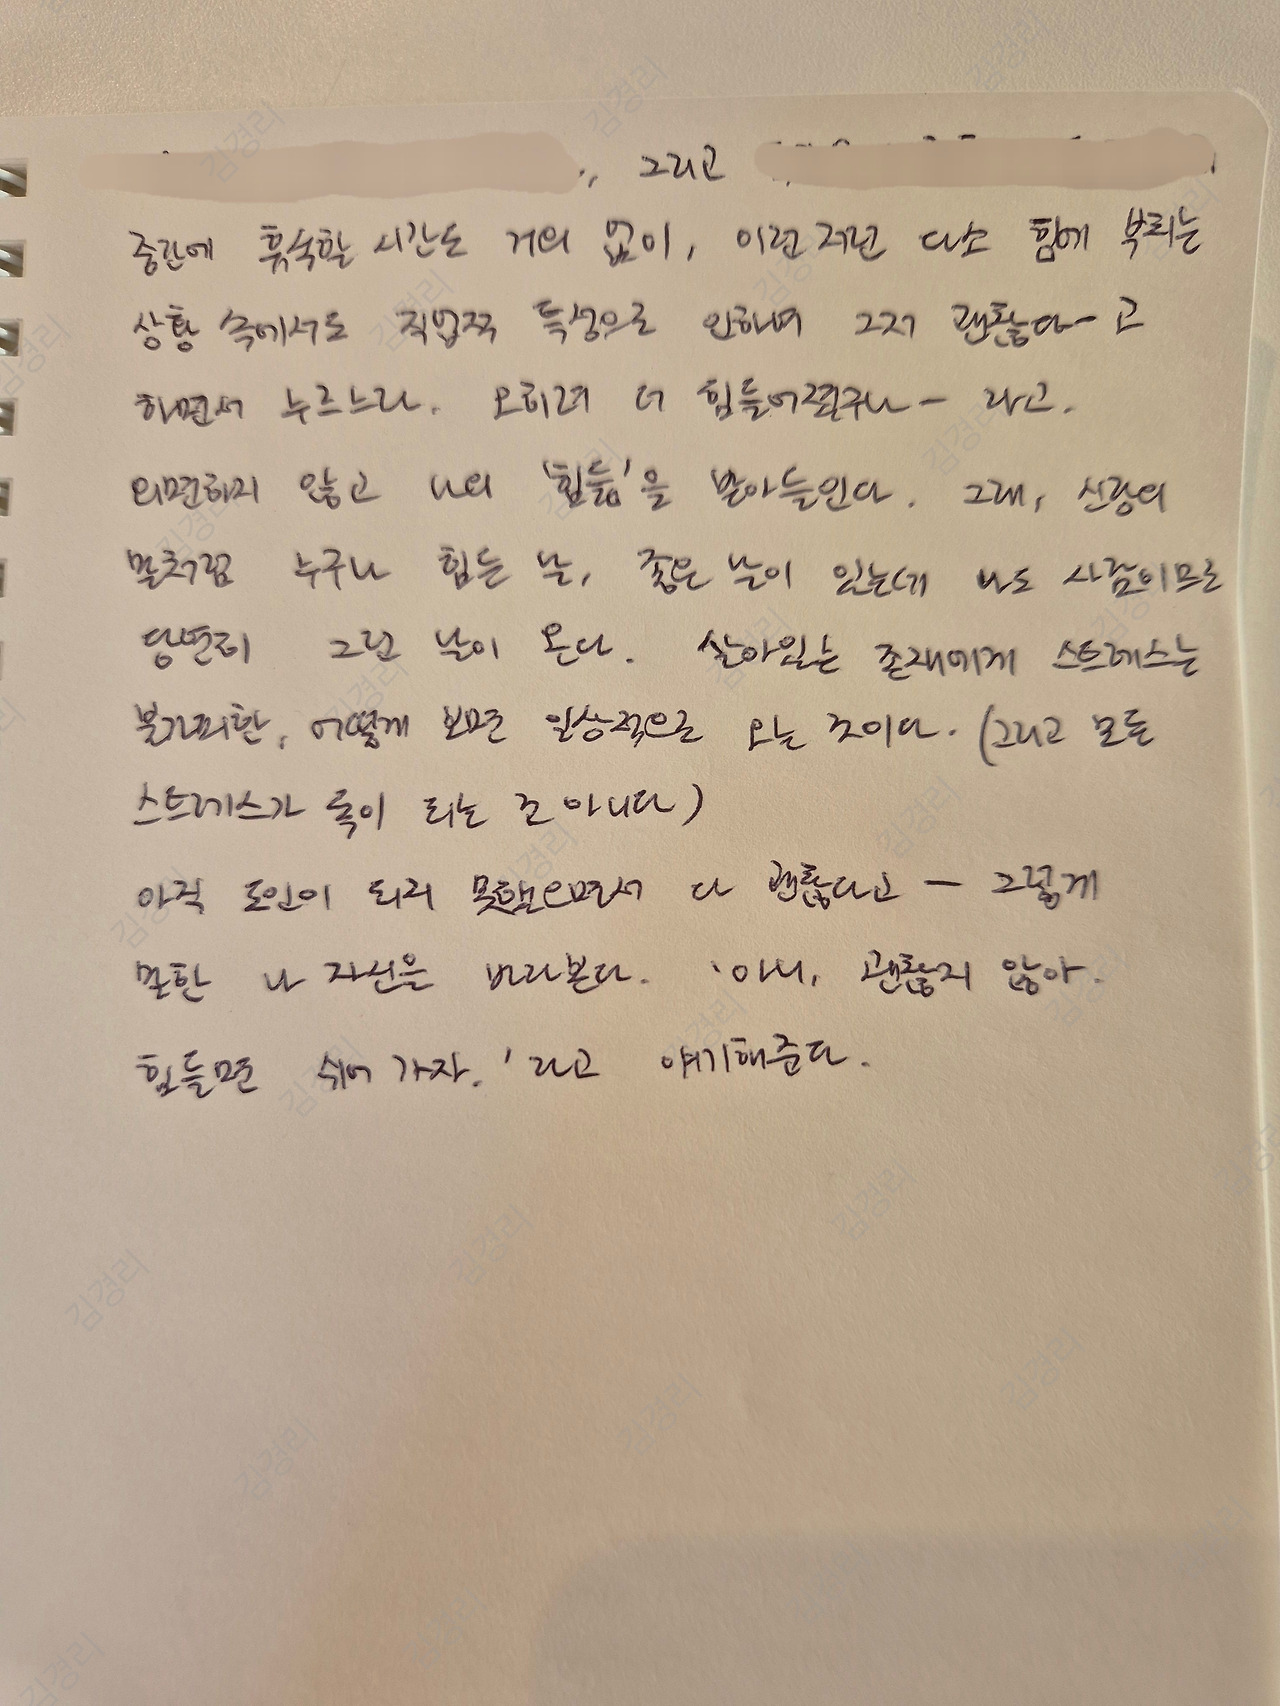 ., 그리고
중간에 휴식할 시간도 거의 없이, 이런저런 다소 힘에 부치는
상황 속에서도 직업적 특성으로 인하여 그저 괜찮다-고
하면서 누르느라. 오히려 더 힘들어졌구나 - 라고.
외면하지 않고 나의 '힘듦'을 받아들인다. 그래, 신랑의
말처럼 누구나 힘든 날, 좋은 날이 있는데 나도 사람이므로
당연히 그런 날이 온다. 살아있는 존재에게 스트레스는
불가피한, 어떻게 보면 일상적으로 오는 것이다. (그리고 모든
스트레스가 독이 되는 건 아니다)
아직 도인이 되지 못했으면서 다 괜찮다고 - 그렇게
말한 나 자신을 바라본다. '아니, 괜찮지 않아.
힘들면 쉬어 가자.'라고 얘기해준다.
김경리